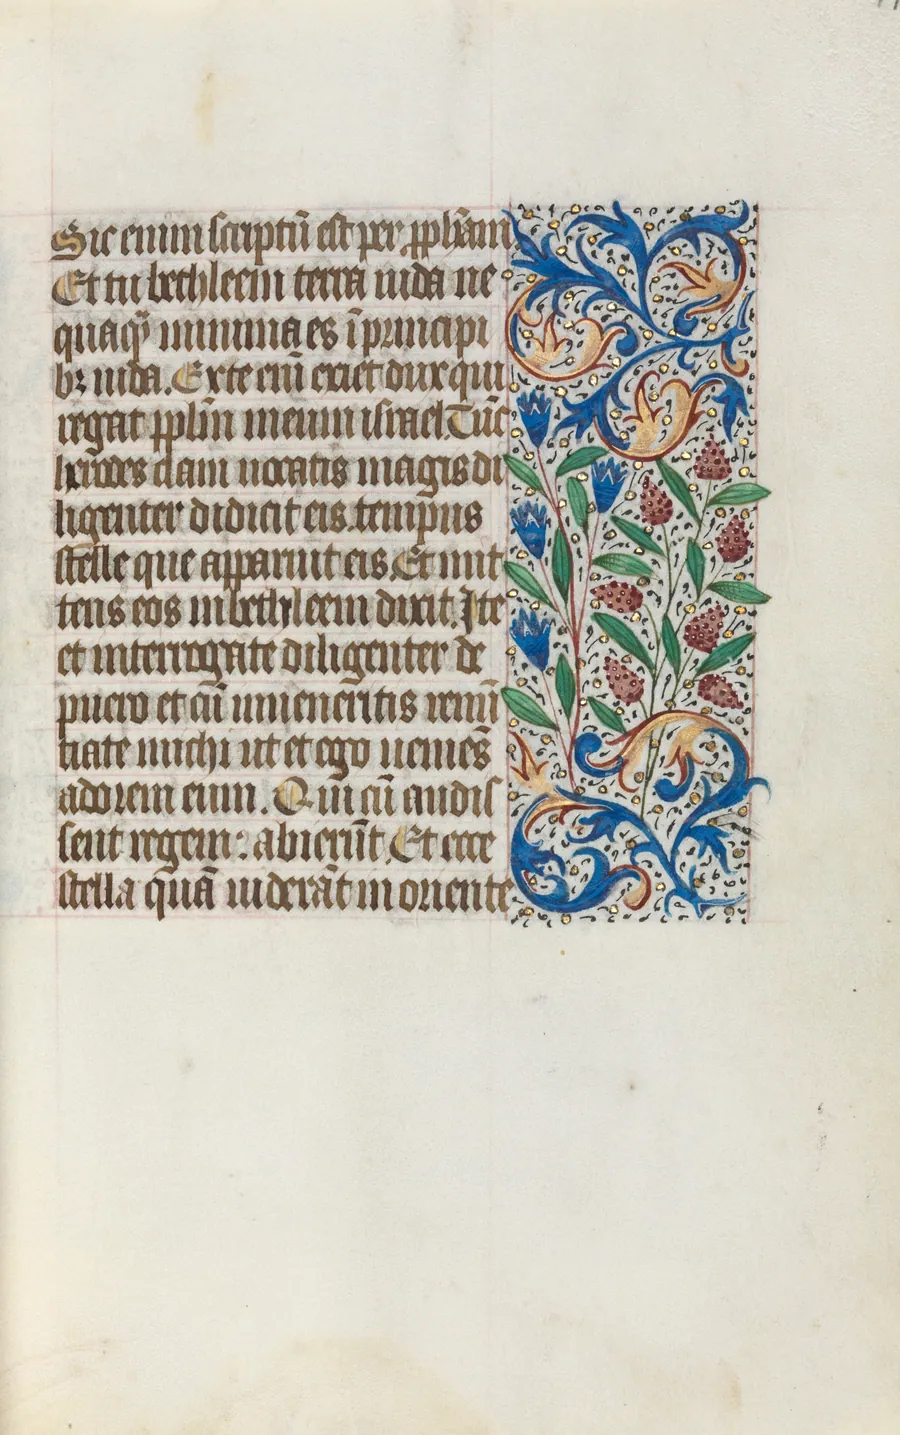 Sic enim scriptū est per ꝓphām.
Et tu bethleem terra iuda ne
quaqȝ minima es ī principi
bꝫ iuda. Ex te eni exiet dux qui
regat pplm meum israel. Tūc
herodes clam uocatis magis di
ligenter didicit eis. tempus
stelle que apparuit eis. Et mit
tens eos in bethleem dixit. Ite
et interrogate diligenter de
puero et cū inuenеritis renū
tiate michi ut et ego ueniēs
adorem eum. Qui cū audis
sent regem: abierūt. Et ecce
stella quā uiderāt in oriente